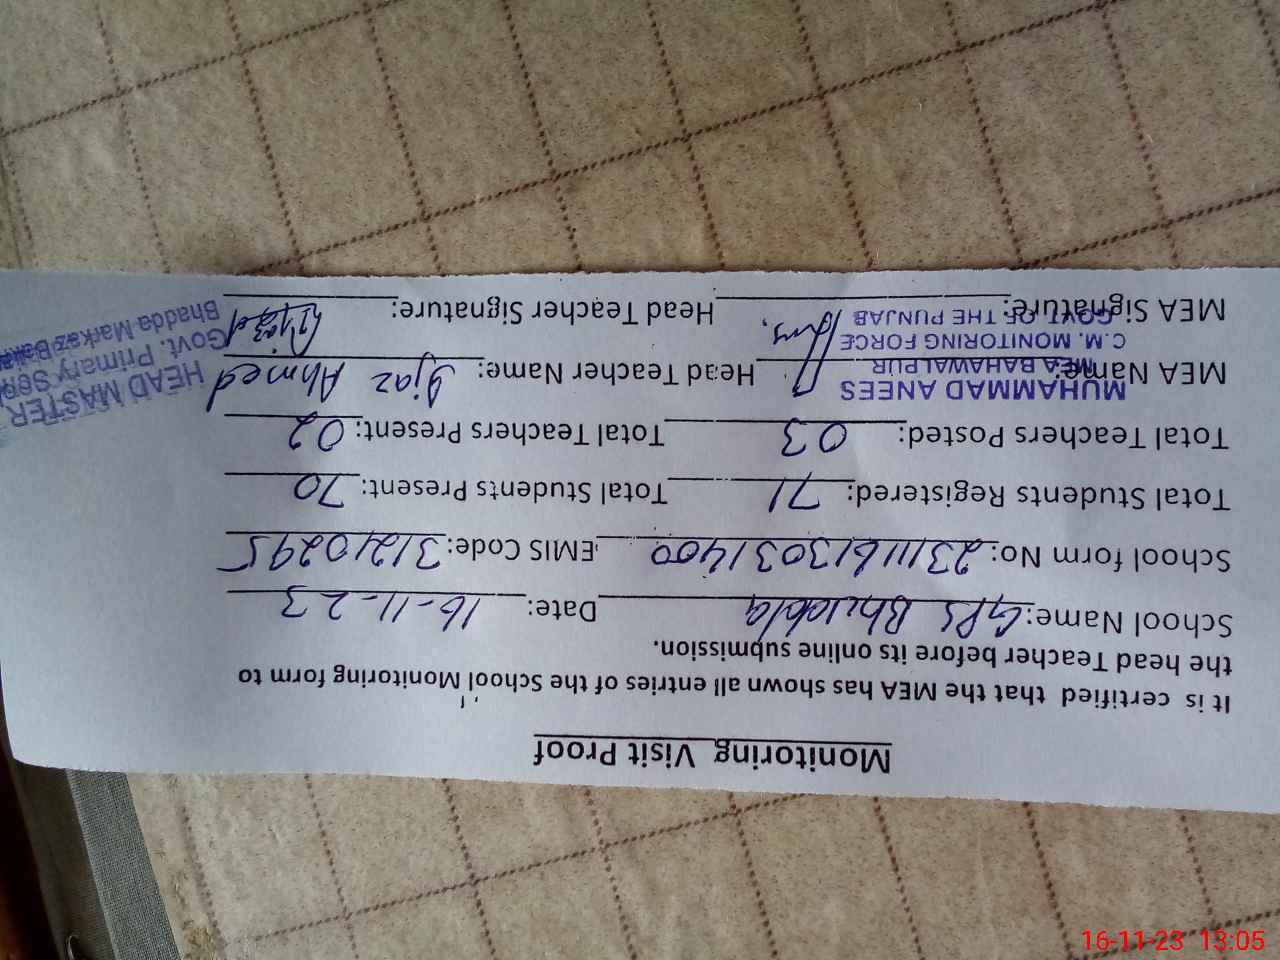 Monitoring Visit Proof
It is certified that the MEA has shown all entries of the School Monitoring form to
the head Teacher before its online submission.
School Name: GPS Bhadda Date: 16-11-23
School form No: 23111613031400 EMIS Code: 31210295
Total Students Registered: 71 Total Students Present: 70
Total Teachers Posted: 03 Total Teachers Present: 02
MEA Name: Head Teacher Name: Ijaz Ahmed
MEA Signature: Head Teacher Signature:
MUHAMMAD ANEES
MEA BAHAWALPUR
C.M. MONITORING FORCE
GOVT. OF THE PUNJAB
HEAD MASTER
Govt. Primary
Bhadda Markaz
16-11-23 13:05